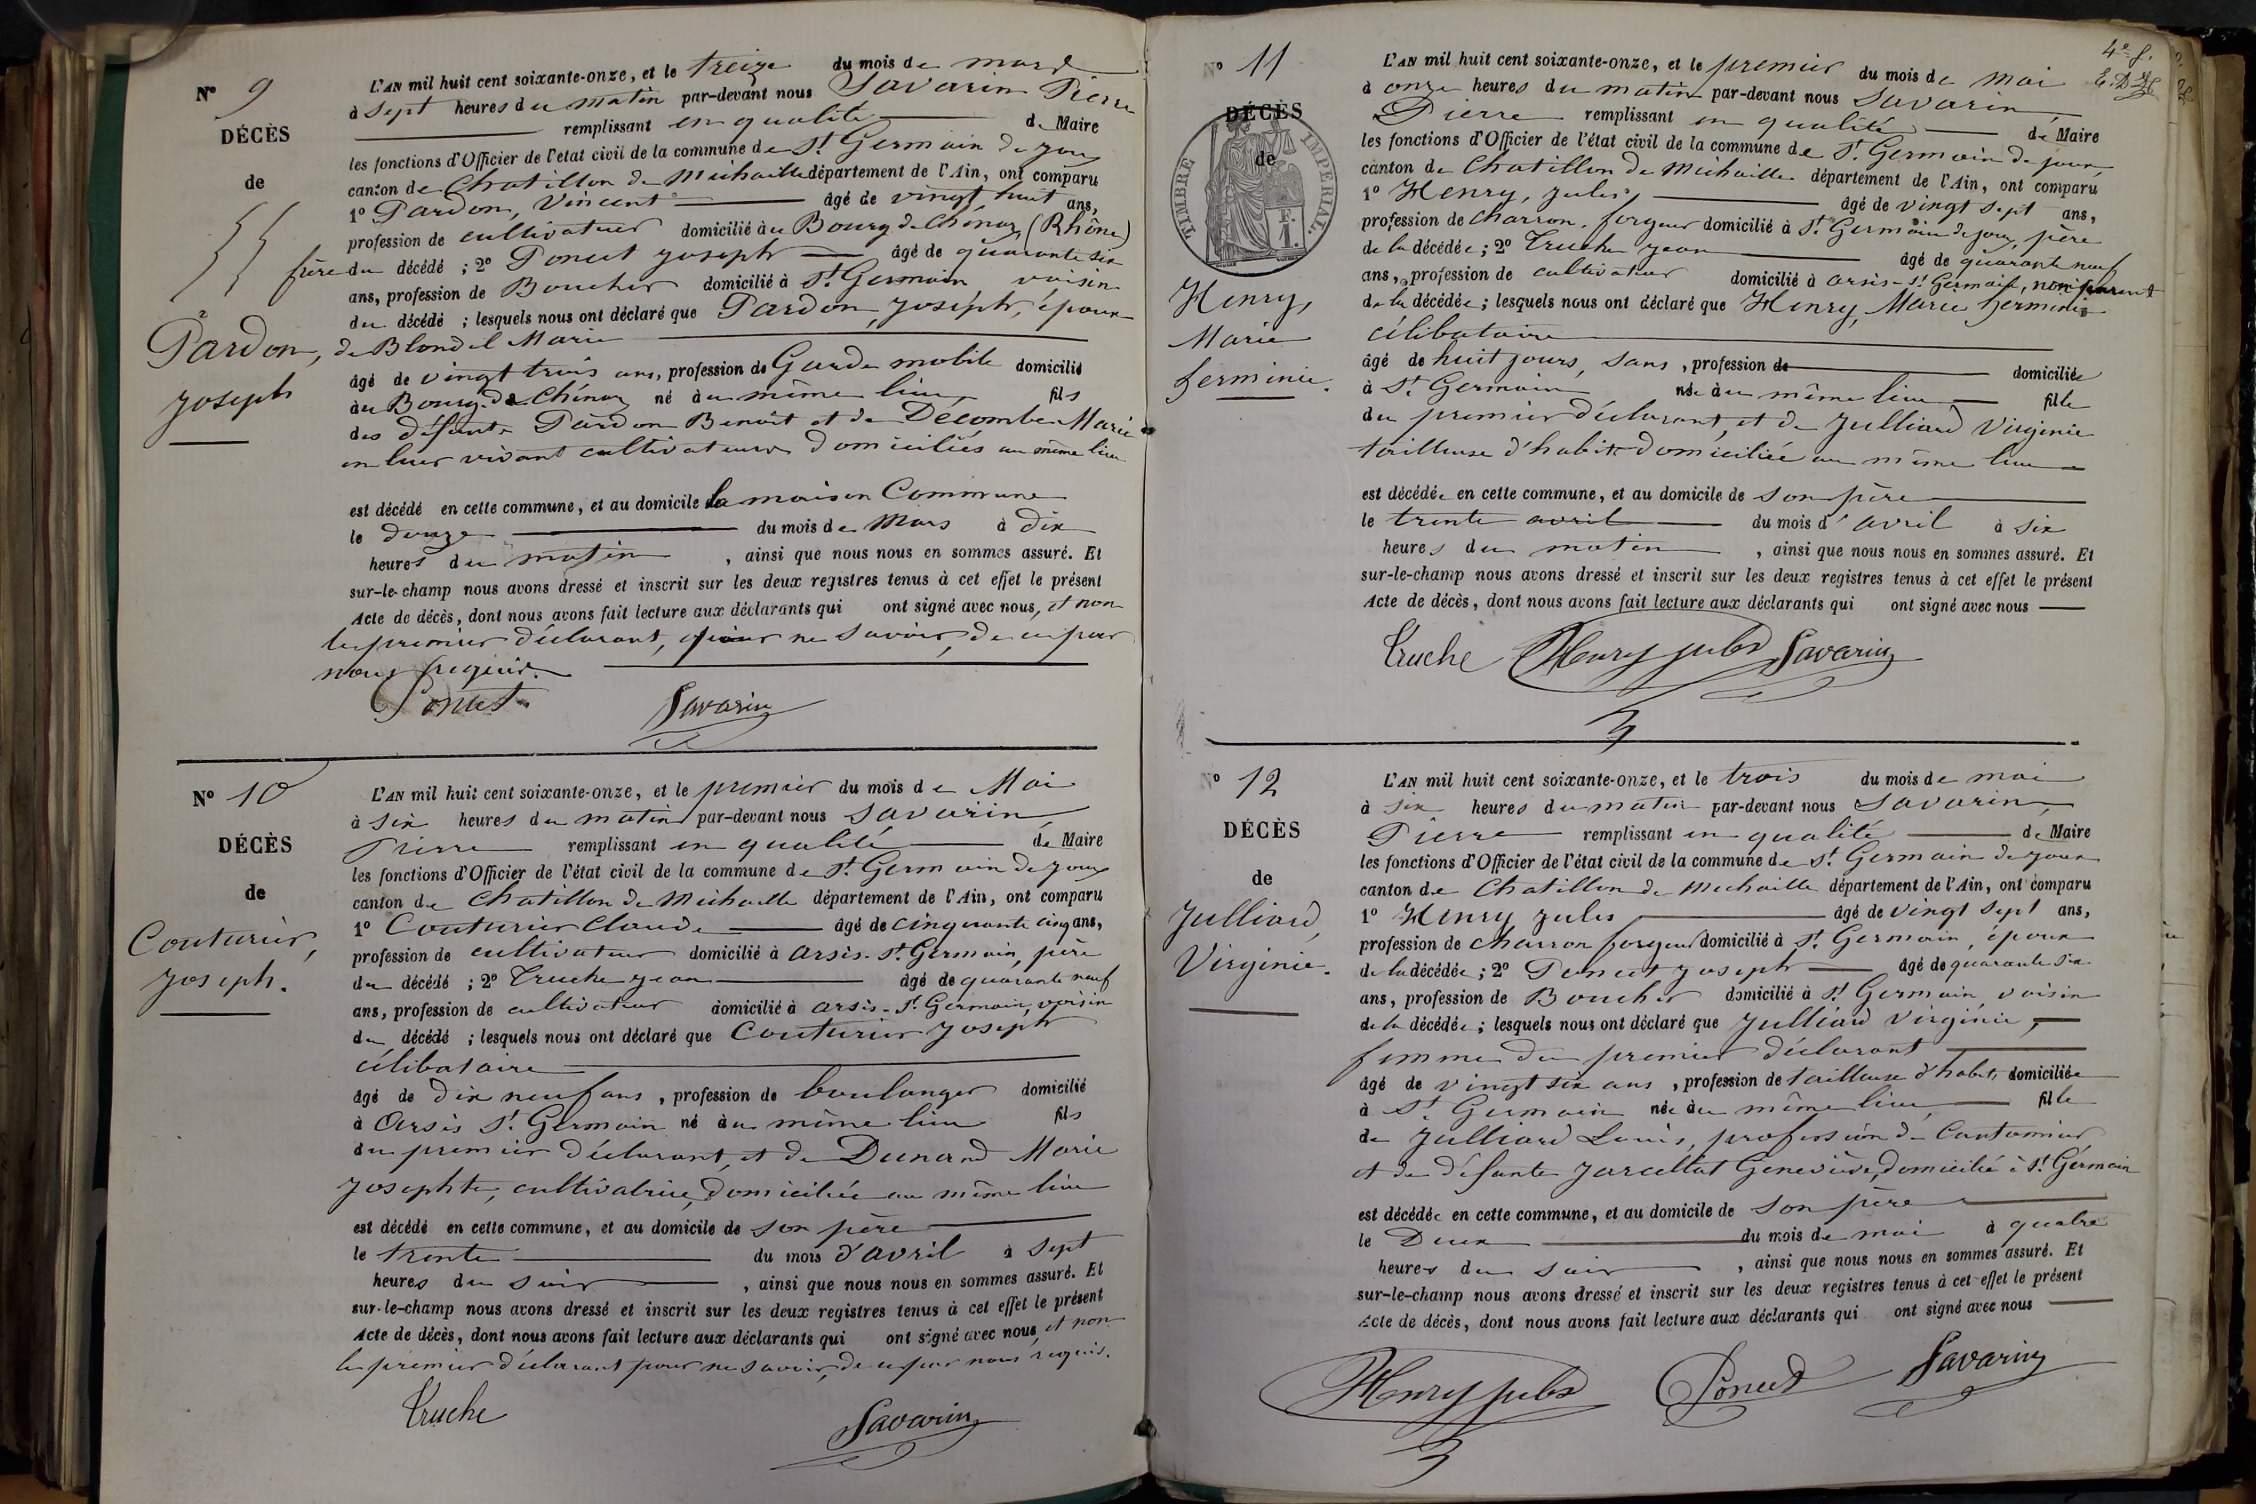 N° 9
DÉCÈS
de
Pardon,
Joseph
L'AN mil huit cent soixante-onze, et le treize du mois de mars
à sept heures du matin par-devant nous Savarin Pierre
remplissant en qualité de Maire
les fonctions d'Officier de l'état civil de la commune de St Germain de joux
canton de Chatillon de Michaille département de l'Ain, ont comparu
1° Pardon, Vincent âgé de vingt huit ans,
profession de cultivateur domicilié au Bourg de Chénas (Rhône)
frère du décédé ; 2° Poncet Joseph âgé de quarante six
ans, profession de Boucher domicilié à St Germain, voisin
du décédé ; lesquels nous ont déclaré que Pardon, Joseph, époux
de Blondel Marie
âgé de vingt trois ans, profession de Garde mobile domicilié
au Bourg de Chénas né au même lieu, fils
des défunts Pardon Benoit et de Décombe Marie
en leur vivant cultivateurs domiciliés au même lieu
est décédé en cette commune, et au domicile de la maison Commune
le douze du mois de Mars à dix
heures du matin, ainsi que nous nous en sommes assuré. Et
sur-le-champ nous avons dressé et inscrit sur les deux registres tenus à cet effet le présent
Acte de décès, dont nous avons fait lecture aux déclarants qui ont signé avec nous, et non
le premier déclarant, pour ne savoir, de ce par
nous requis.
Poncet Savarin
N° 10
DÉCÈS
de
Couturier,
Joseph.
L'AN mil huit cent soixante-onze, et le premier du mois de Mai
à six heures du matin par-devant nous Savarin,
Pierre remplissant en qualité de Maire
les fonctions d'Officier de l'état civil de la commune de St Germain de joux
canton de Chatillon de Michaille département de l'Ain, ont comparu
1° Couturier Claude âgé de cinquante cinq ans,
profession de cultivateur domicilié à Arsis-St Germain, père
du décédé ; 2° Truche Jean âgé de quarante neuf
ans, profession de cultivateur domicilié à Arsis-St Germain, voisin
du décédé ; lesquels nous ont déclaré que Couturier Joseph
célibataire
âgé de dix neuf ans, profession de boulanger domicilié
à Arsis St Germain né au même lieu fils
du premier déclarant, et de Dunand Marie
Josephte, cultivatrice, domiciliée au même lieu
est décédé en cette commune, et au domicile de son père
le trente du mois d'avril à sept
heures du soir, ainsi que nous nous en sommes assuré. Et
sur-le-champ nous avons dressé et inscrit sur les deux registres tenus à cet effet le présent
Acte de décès, dont nous avons fait lecture aux déclarants qui ont signé avec nous, et non
le premier déclarant pour ne savoir, de ce par nous requis.
Truche Savarin
4e f.
N° 11
DÉCÈS
de
TIMBRE IMPÉRIAL
F. 1.
Henry,
Marie
herminie.
L'AN mil huit cent soixante-onze, et le premier du mois de mai
à onze heures du matin par-devant nous Savarin
Pierre remplissant en qualité de Maire
les fonctions d'Officier de l'état civil de la commune de St Germain de joux,
canton de Chatillon de Michaille département de l'Ain, ont comparu
1° Henry, Jules âgé de vingt sept ans,
profession de charron, forgeur domicilié à St Germain de joux, père
de la décédée ; 2° Truche Jean âgé de quarante neuf
ans, profession de cultivateur domicilié à arsis-St Germain, non parent
de la décédée ; lesquels nous ont déclaré que Henry, Marie herminie
célibataire
âgé de huit jours, sans, profession de domiciliée
à St Germain née au même lieu fille
du premier déclarant, et de Julliard Virginie
tailleuse d'habits domiciliée au même lieu
est décédée en cette commune, et au domicile de son père
le trente avril du mois d'avril à six
heures du matin, ainsi que nous nous en sommes assuré. Et
sur-le-champ nous avons dressé et inscrit sur les deux registres tenus à cet effet le présent
Acte de décès, dont nous avons fait lecture aux déclarants qui ont signé avec nous
Truche Henry jules Savarin
N° 12
DÉCÈS
de
Julliard,
Virginie.
L'AN mil huit cent soixante-onze, et le trois du mois de mai
à six heures du matin par-devant nous Savarin,
Pierre remplissant en qualité de Maire
les fonctions d'Officier de l'état civil de la commune de St Germain de joux
canton de Chatillon de Michaille département de l'Ain, ont comparu
1° Henry Jules âgé de vingt sept ans,
profession de charron forgeur domicilié à St Germain, époux
de la décédée ; 2° Poncet Joseph âgé de quarante six
ans, profession de Boucher domicilié à St Germain, voisin
de la décédée ; lesquels nous ont déclaré que Julliard Virginie,
femme du premier déclarant
âgé de vingt six ans, profession de tailleuse d'habits domiciliée
à St Germain née au même lieu, fille
de Julliard Louis, profession de Cantonnier,
et de défunte Jarcellat Geneviève, domicilié à St Germain
est décédée en cette commune, et au domicile de son père
le Deux du mois de mai à quatre
heures du soir, ainsi que nous nous en sommes assuré. Et
sur-le-champ nous avons dressé et inscrit sur les deux registres tenus à cet effet le présent
Acte de décès, dont nous avons fait lecture aux déclarants qui ont signé avec nous
Henry jules Poncet Savarin